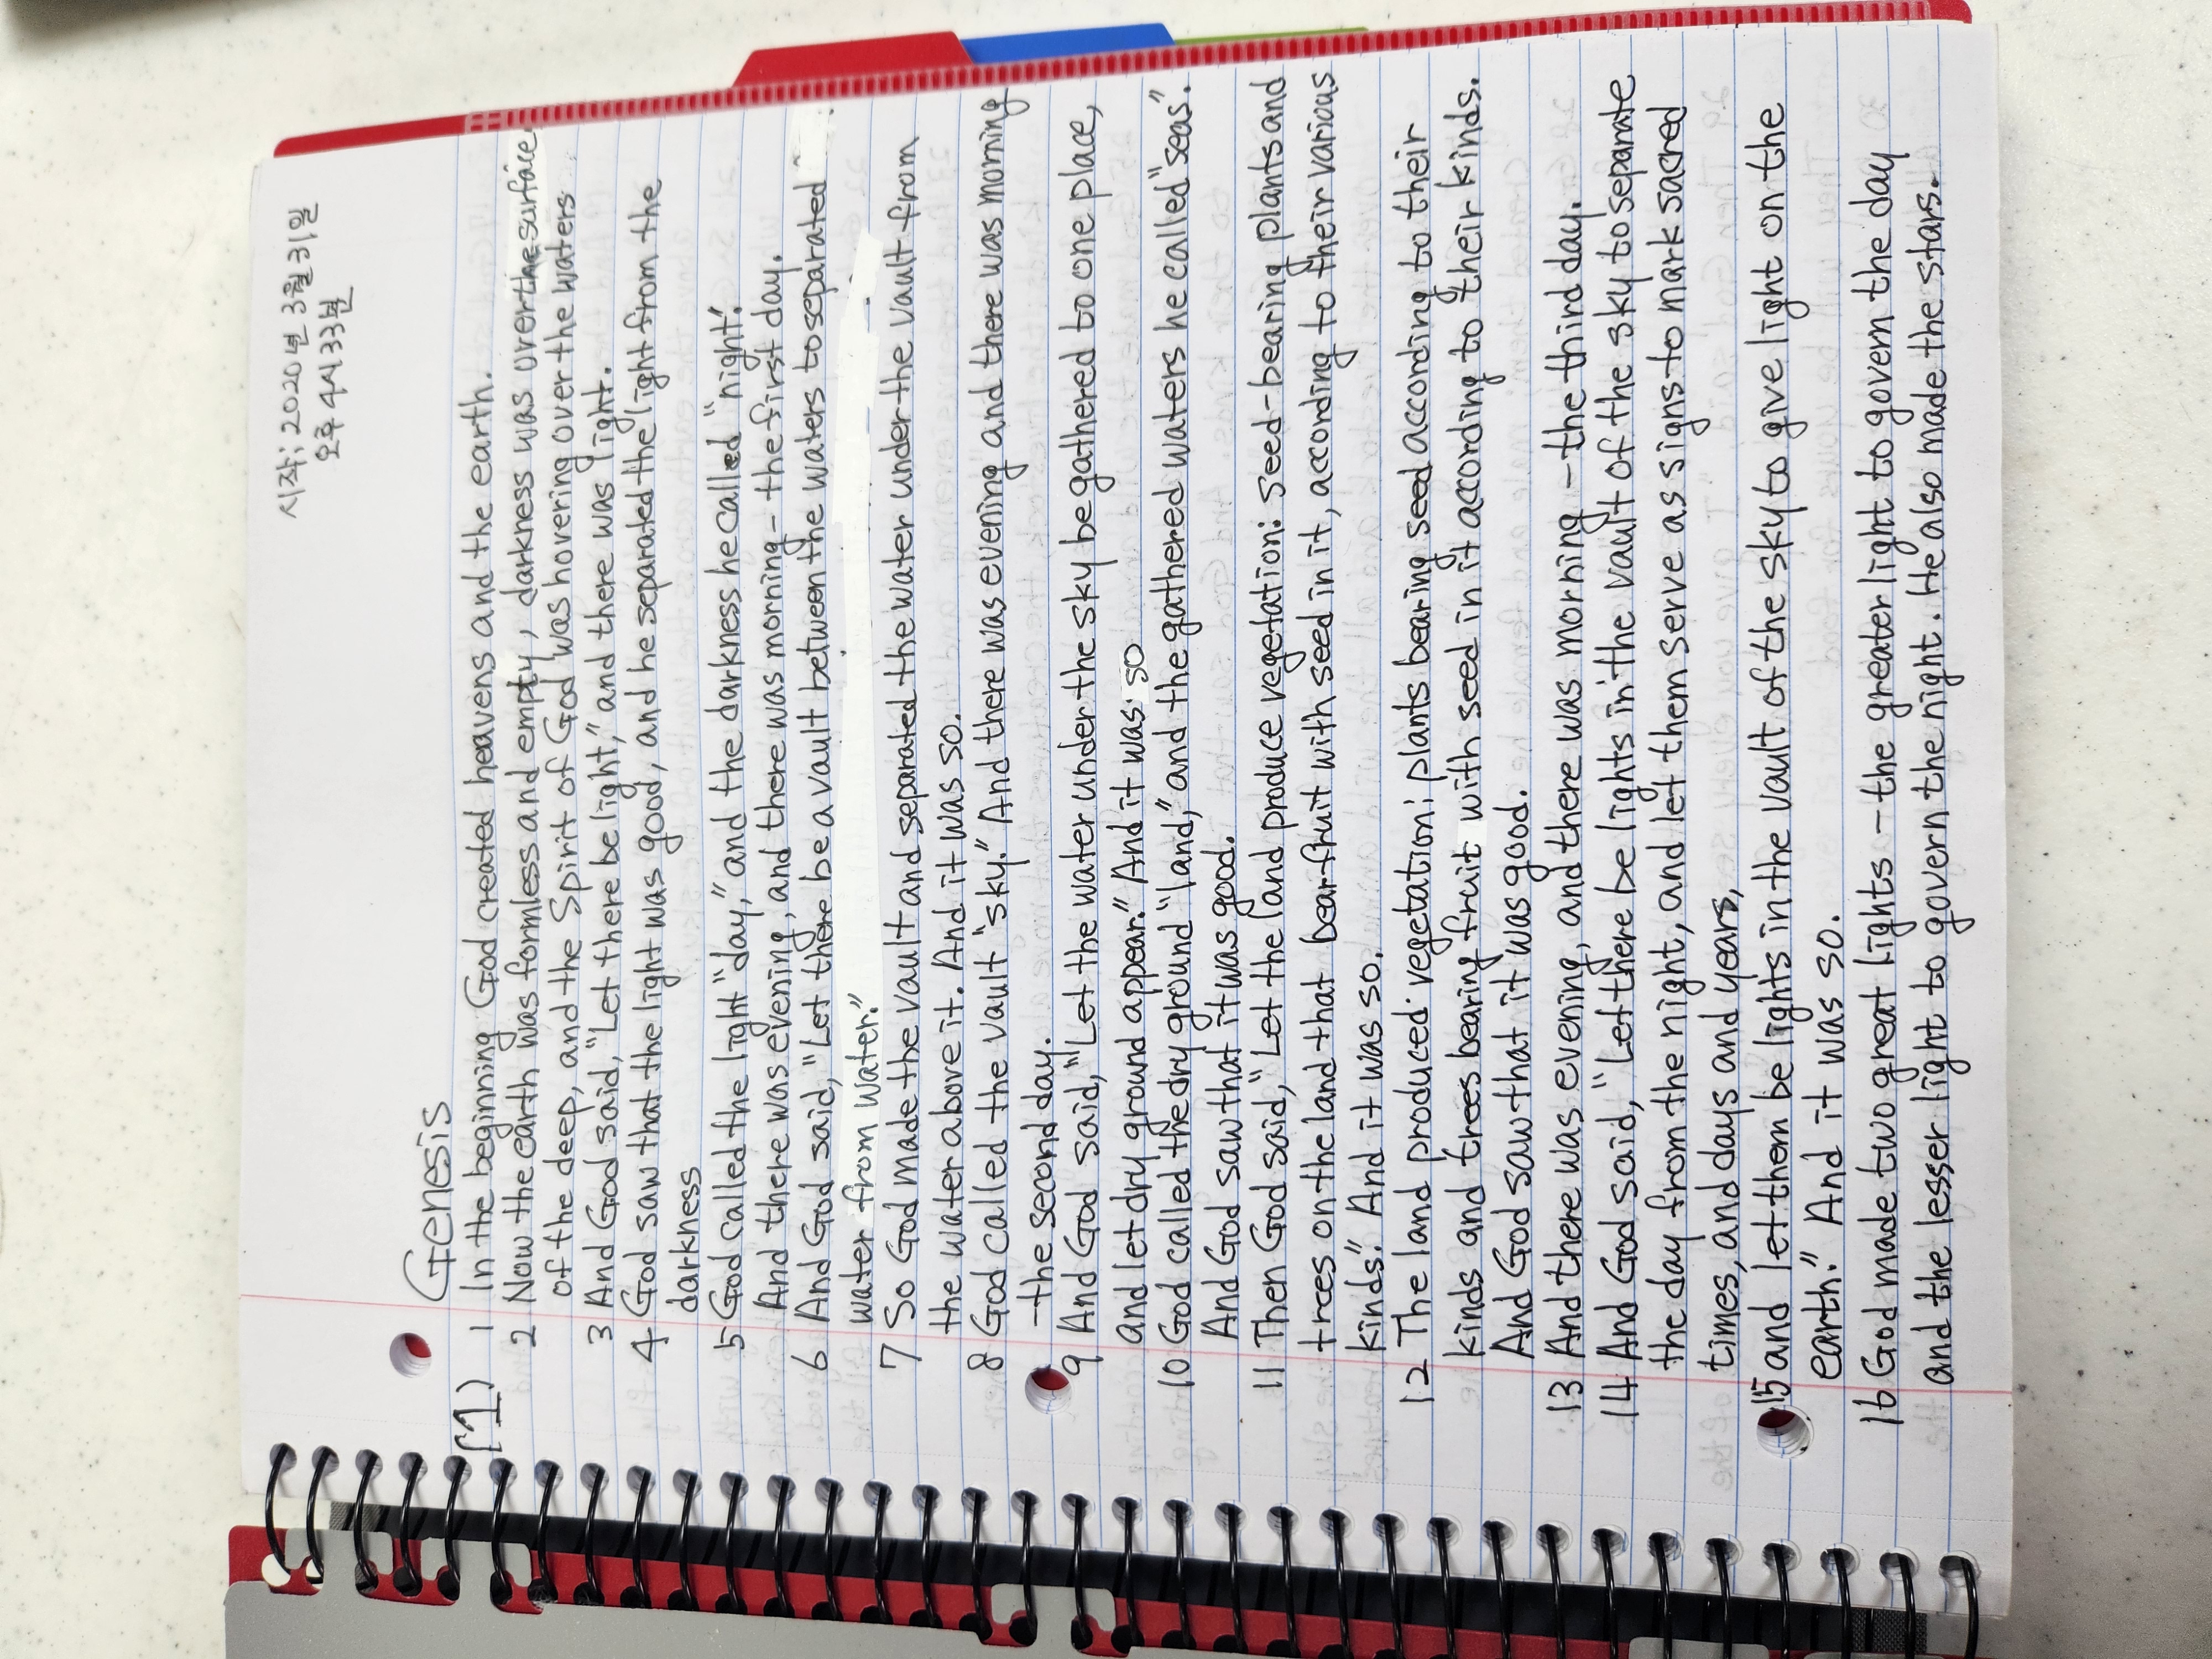 시작; 2020년 3월 31일
오후 4시 33분
Genesis
[1] 1 In the beginning God created heavens and the earth.
2 Now the earth was formless and empty, darkness was over the surface
of the deep, and the Spirit of God was hovering over the waters
3 And God said, "Let there be light," and there was light.
4 God saw that the light was good, and he separated the light from the
darkness
5 God called the light "day," and the darkness he called "night".
And there was evening, and there was morning - the first day.
6 And God said, "Let there be a vault between the waters to separated
water from water."
7 So God made the vault and separated the water under the vault from
the water above it. And it was so.
8 God called the vault "sky." And there was evening and there was morning
- the second day.
9 And God said, "Let the water under the sky be gathered to one place,
and let dry ground appear." And it was so
10 God called the dry ground "land," and the gathered waters he called "seas".
And God saw that it was good.
11 Then God said, "Let the land produce vegetation: seed-bearing plants and
trees on the land that bear fruit with seed in it, according to their various
kinds." And it was so.
12 The land produced vegetation: plants bearing seed according to their
kinds and trees bearing fruit with seed in it according to their kinds.
And God saw that it was good.
13 And there was evening, and there was morning - the third day.
14 And God said, "Let there be lights in the vault of the sky to separate
the day from the night, and let them serve as signs to mark sacred
times, and days and years,
15 and let them be lights in the vault of the sky to give light on the
earth." And it was so.
16 God made two great lights - the greater light to govern the day
and the lesser light to govern the night. He also made the stars.